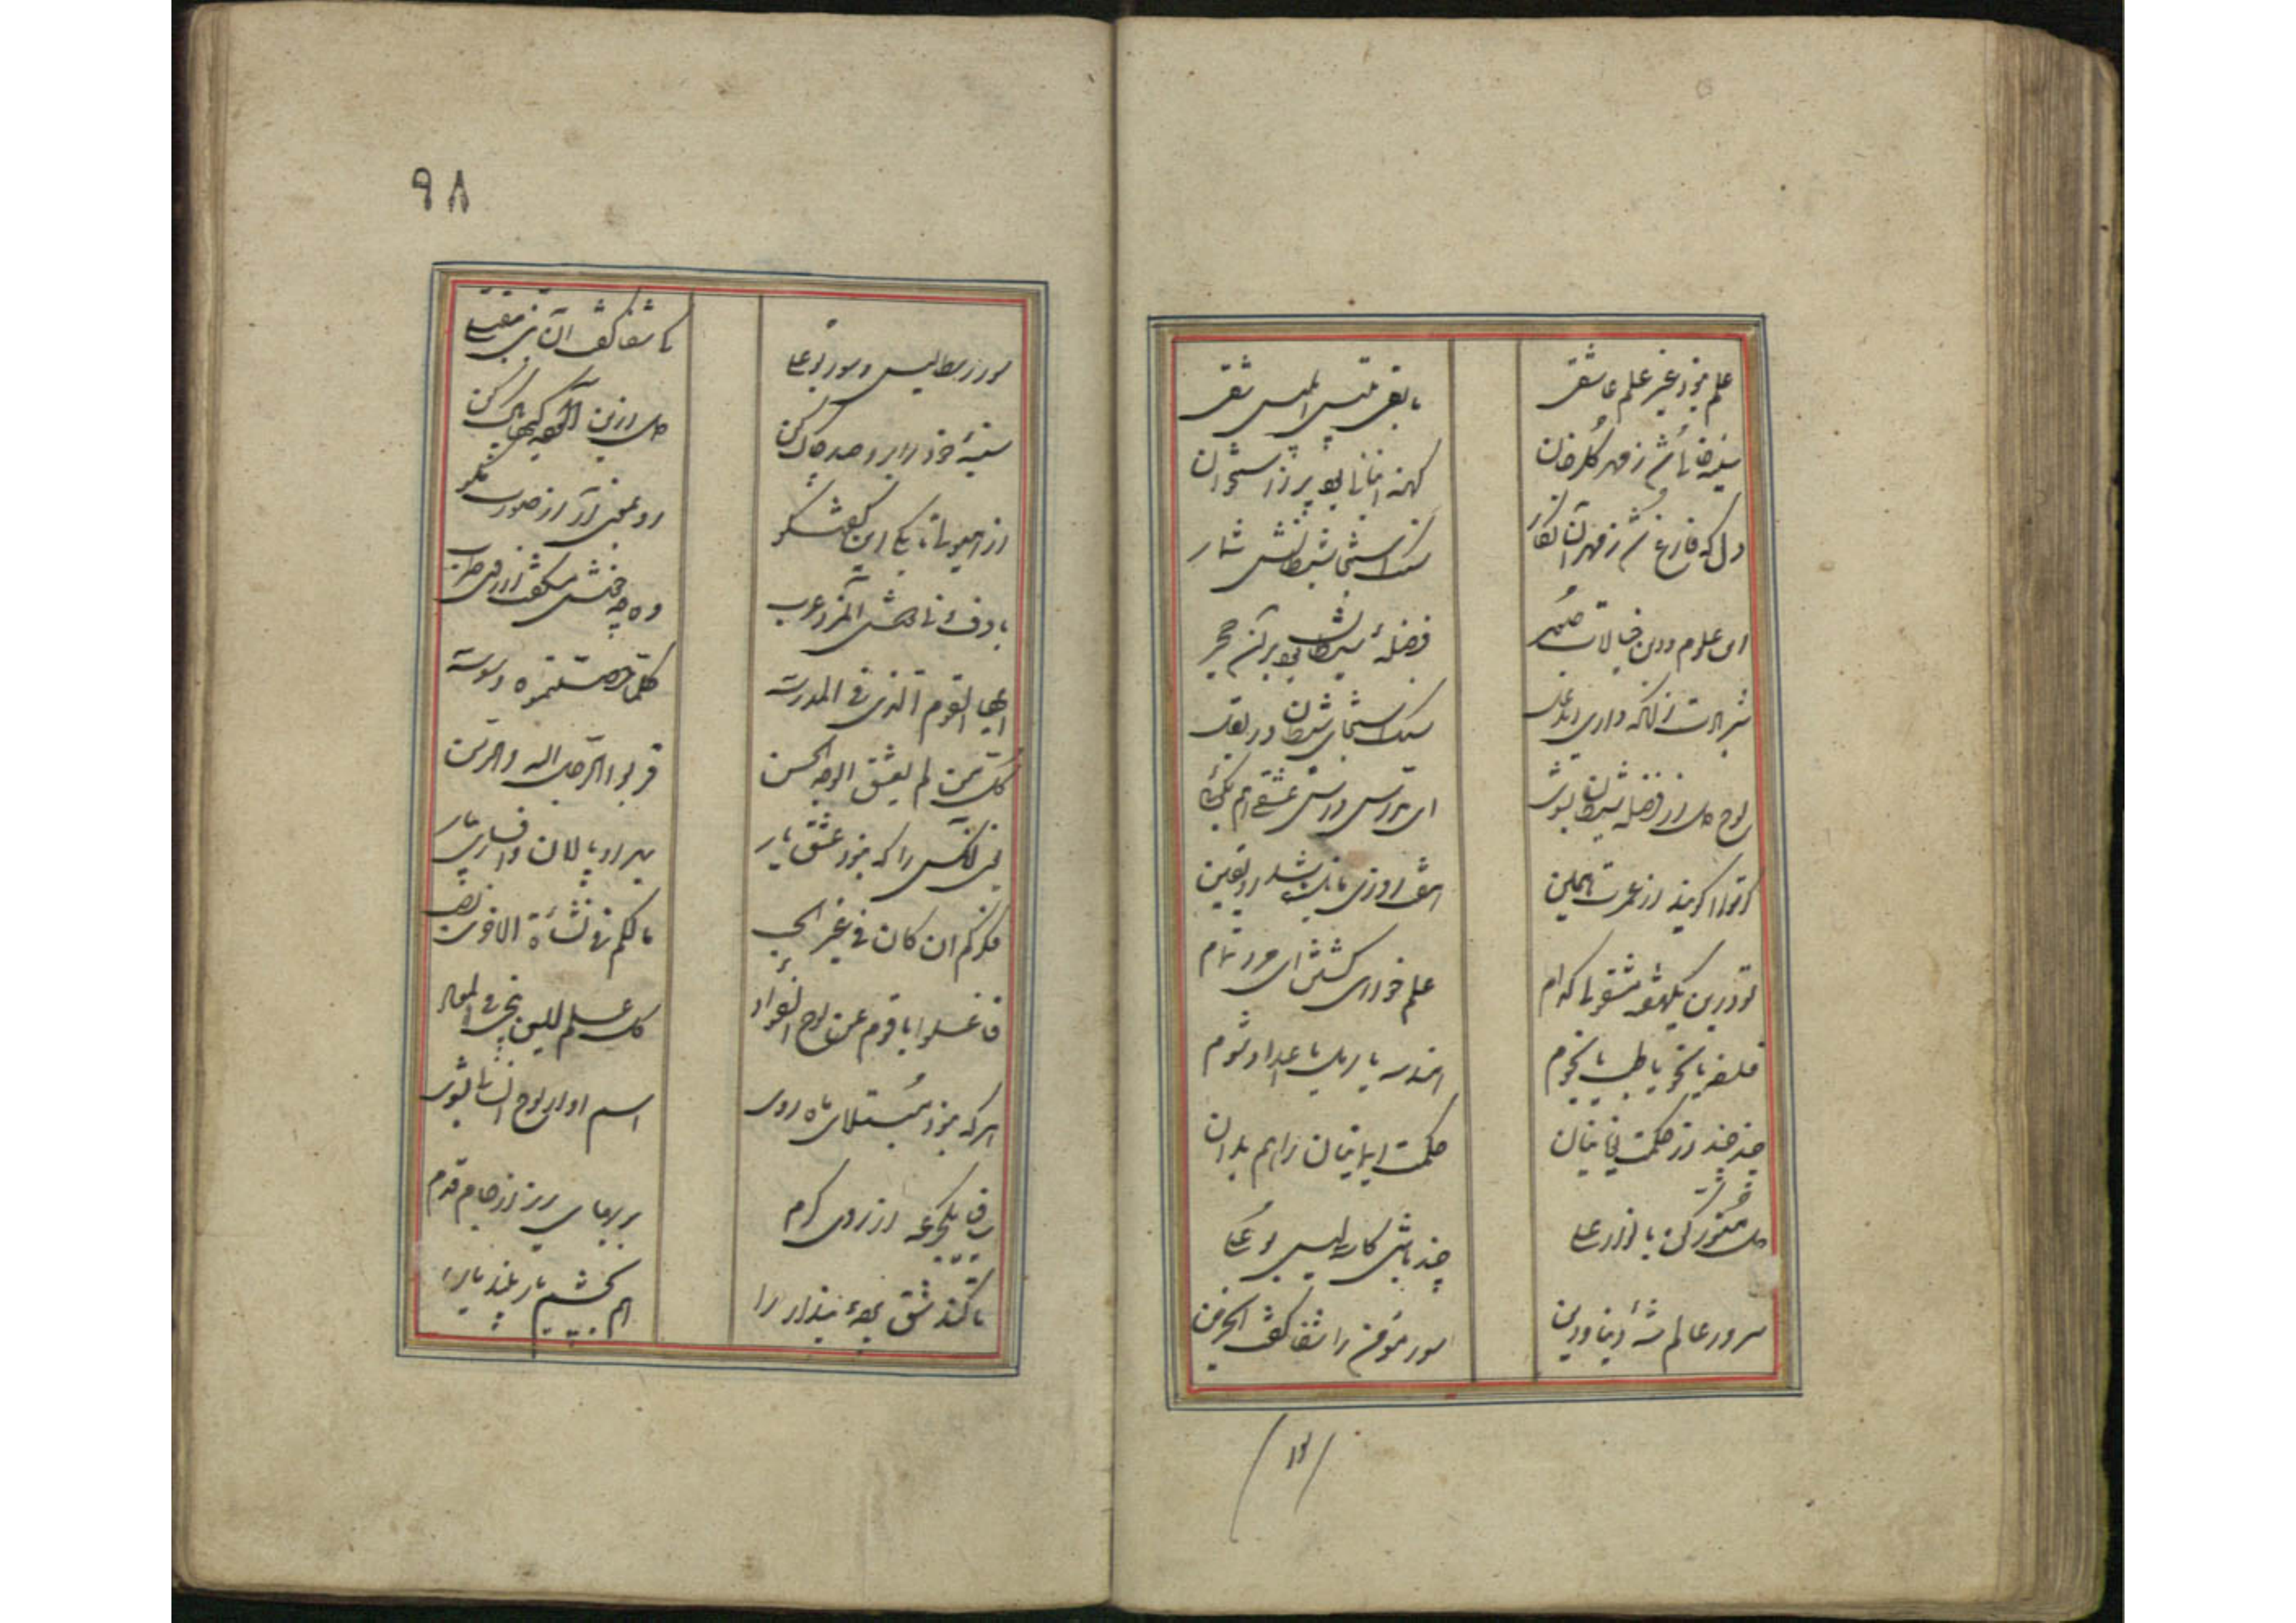 علم نبود غیر علم عاشقی
مابقی تلبیس ابلیس شقی
سینه خالی شد ز مهر گلرخان
کهنه انبانی بود پر ز استخوان
دل که فارغ شد ز مهر آن نگار
سنگ استنجای شیطانش شمار
این علوم و این خیالات صور
فضله شیطان بود بر آن حجر
شرم بادت زانکه داری ای دغل
سنگ استنجای شیطان در بغل
لوح دل از فضله شیطان بشوی
ای مدرس درس عشقی هم بگوی
گر تو را گویند از عمرت همین
هفت روزی مانده باشد در یقین
تو درین یکهفته مشغول کدام
علم خواهی گشتن ای مرد تمام
فلسفه یا نحو یا طب یا نجوم
هندسه یا رمل یا اعداد شوم
چند چند از حکمت یونانیان
حکمت ایمانیان را هم بدان
دل منور کن بانوار علی
چند باشی کاسه لیس بوعلی
سرور عالم شه دنیا و دین
سور مؤمن را شفا گفت الحزین
سور
۹۸
سور رسطالیس و سور بوعلی
کی شفا گفت آن نبی
سینه خود را برو صد چاک کن
دل ازین آلودگیها پاک کن
از هیولا تا بکی این گفتگو
رو بمعنی آر از صورت مگو
با دف و نی دوش آن مرد عرب
وه چه خوش میگفت از روی طرب
ایها القوم الذی فی المدرسه
کلما حصلتموه وسوسه
کل من لم یعشق الوجه الحسن
قربوا الرحل الیه والرسن
یعنی آنکس را که نبود عشق یار
بهر او پالان و افساری بیار
فکرکم ان کان فی غیر الحبیب
مالکم فی نشأة الاخری نصیب
فاغسلوا یا قوم عن لوح الفؤاد
کل علم لیس ینجی فی المعاد
هر که نبود مبتلای ماه روی
اسم او از لوح انسانی بشوی
ساقی یکجرعه از روی کرم
بر بهایی ریز از جام قدم
تا کند شق پرده پندار را
هم بچشم یار بیند یار را